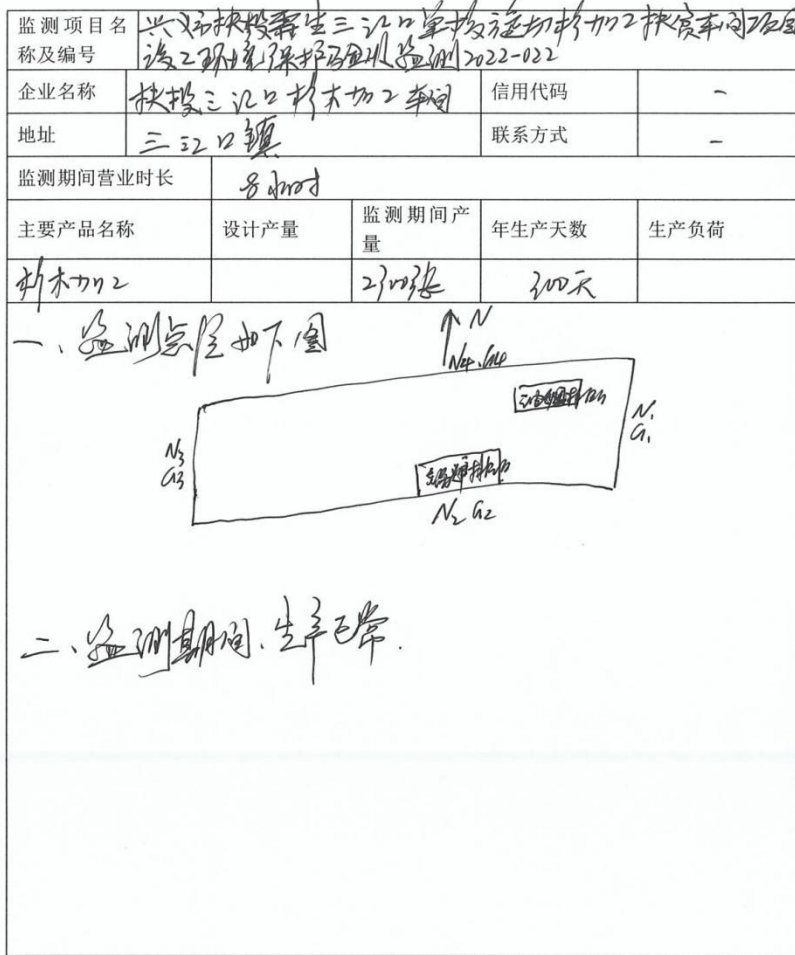 监测项目名
称及编号
兴义市扶投 三江口单板旋切 加工扶贫车间项目
竣工环境保护验收监测2022-022
企业名称 扶投三江口杉木加工车间 信用代码 -
地址 三江口镇 联系方式 -
监测期间营业时长 8小时
主要产品名称 设计产量 监测期间产
量 年生产天数 生产负荷
杉木加工 2300张 300天
一、监测点位如下图
N
N4.G4
N1
G1
N3
G3
N2 G2
二、监测期间.生产正常.